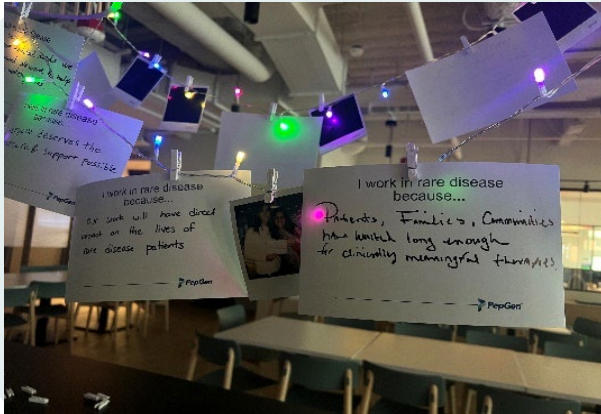 in rare disease
because...
deserves the
support possible
PepGen
I work in rare disease
because...
our work will have direct
impact on the lives of
rare disease patients
PepGen
I work in rare disease
because...
Patients, Families, Communities
have long enough
for clinically meaningful therapies.
PepGen